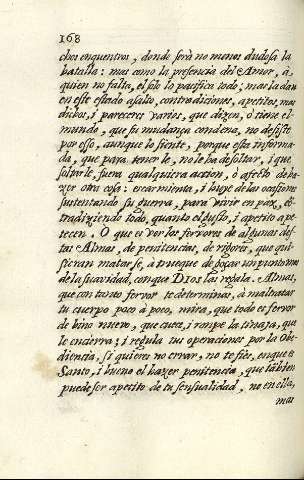 168
chos enquentros, donde serà no menos dudosa la
batalla: mas como la presencia del Amor, à
quien no falta, el solo lo pacifica todo; mas la dan
en este estado asalto, contradiciones, apetitos, ma
dichos, i pareceres varios, que dizen, ò tiene el
mundo, que su mudança condena, no desiste
por esso, aunque lo siente, porque està informa
da, que para tenerle, no le ha de soltar, i que
soltarle, fuera qualquiera accion, ò afecto de ha
zer otra cosa: escarmienta, i huye de las ocasiones
sustentando su guerra, para vivir en paz, cō
tradiziendo todo, quanto el gusto, i apetito ape
tecen. O que es ver los fervores de algunas des
tas Almas, de penitencias, de rigores, que qui
sieran matarse, à trueque de gozar un punto mas
de la suavidad, con que DIOS las regala. Almas,
que con tanto fervor te determinas, à maltratar
tu cuerpo poco à poco, mira, que todo es fervor
de bino nuevo, que cuece, i rompe la tinaja, que
le encierra; i regula tus operaciones por la Obe
diencia, si quieres no errar, no te fies, en que es
Santo, i bueno el hazer penitencia, que tābien
puede ser apetito de tu sensualidad, no en ella,
mas